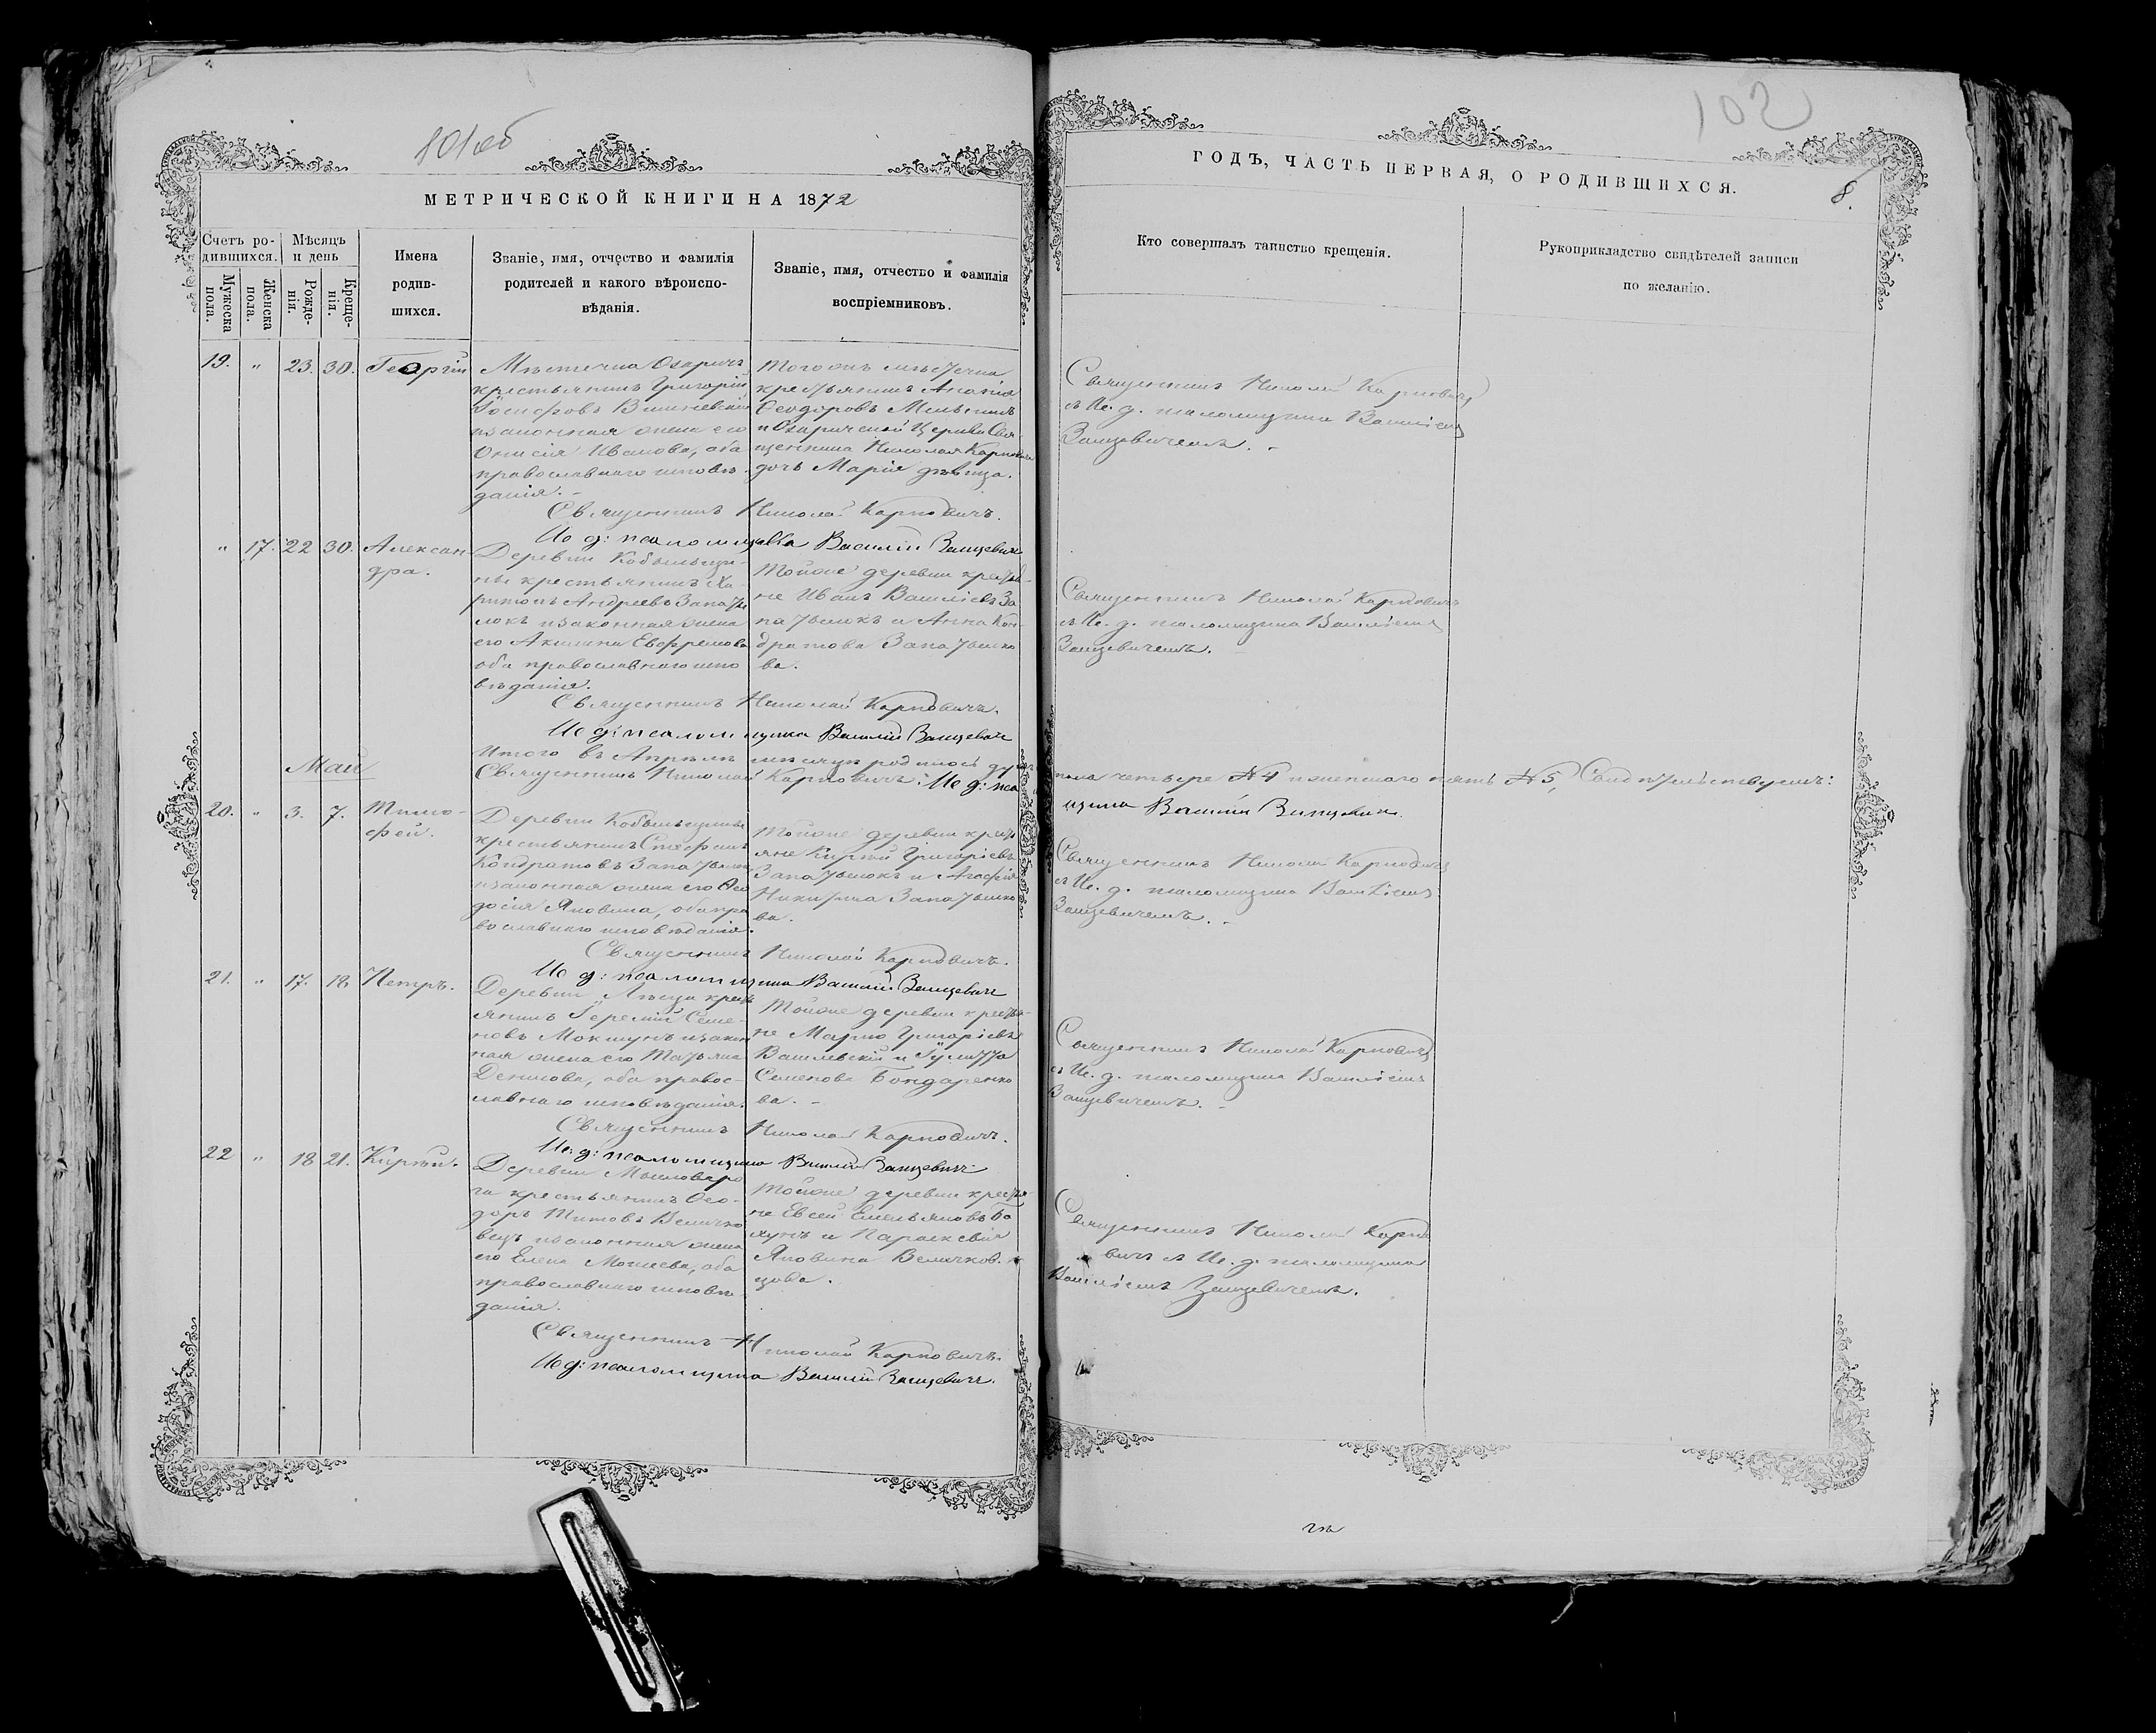 101об
МЕТРИЧЕСКОЙ КНИГИ НА 1872
Счетъ ро-
дившихся.
Мѣсяцъ
и день
Мужеска
пола.
Женска
пола.
Рожде-
нія.
Креще-
нія.
Имена
родив-
шихся.
Званіе, имя, отчество и фамилія
родителей и какого вѣроиспо-
вѣданія.
Званіе, имя, отчество и фамилія
воспріемниковъ.
19. " 23. 30. Георгій
Мѣстечка Озаричъ
крестьянинъ Григорій
Іосифовъ Вишневскій
и законная жена его
Онисія Иванова, оба
православнаго исповѣ-
данія.-
Тогожъ мѣстечка
крестьянинъ Ананія
Ѳеодоровъ Мельникъ
и Озаричской Церкви Свя-
щенника Николая Карповича
дочь Марія дѣвица.
Священникъ Николай Карповичъ.
Ис. д: псаломщика Василій Занцевичъ
" 17. 22 30. Алексан-
дра.
Деревни Кобыльщи-
ны крестьянинъ Ха-
ритонъ Андреевъ Запаты
локъ и законная жена
его Акилина Евфремова
оба православнаго испо
вѣданія.
Тойже деревни крестья-
не Иванъ Василіевъ За
патылокъ и Анна Кон-
дратова Запатылко
ва.
Священникъ Николай Карповичъ.
Ис д: псаломщика Василій Занцевичъ
Итого въ Апрѣлѣ мѣсяцѣ родилось
Священникъ Николай Карповичъ. Ис д: псалом
Май
20. " 3. 7. Тимо-
фей.
Деревни Кобыльщины
крестьянинъ Стефанъ
Кондратовъ Запатылокъ
и законная жена его Ѳео
досія Яковлева, оба пра
вославнаго исповѣданія.
Тойже деревни кресть
яне Кириллъ Григоріевъ
Запатылокъ и Агафія
Никитина Запатылко
ва.
Священникъ Николай Карповичъ.
Ис д: псаломщика Василій Занцевичъ
21. " 17. 18. Петръ.
Деревни крестъ
янинъ Іеремій Семе-
новъ Мокшунъ и закон
ная жена его Татьяна
Денисова, оба правос-
лавнаго исповѣданія.
Тойже деревни крестья-
не Марко Григоріевъ
Василевскій и Іулитта
Семенова Бондаренко
ва. -
Священникъ Николай Карповичъ.
Ис. д: псаломщика Василій Занцевичъ
22 " 18 21.
Деревни
га крестьянинъ Ѳео-
доръ Титовъ Величко
вецъ и законная жена
его Елена Моисеева, оба
православнаго исповѣ-
данія.
Тойже деревни крестья-
не Евсей Емельяновъ Бо
хунъ и Параскевія
Яковлева Величков-
цова.
Священникъ Николай Карповичъ.
Ис д: псаломщика Василій Занцевичъ.
102
8.
ГОДЪ, ЧАСТЬ ПЕРВАЯ, О РОДИВШИХСЯ.
Кто совершалъ таинство крещенія.
Рукоприкладство свидѣтелей записи
по желанію.
Священникъ Николай Карповичъ
съ Ис. д. псаломщика Василіемъ
Занцевичемъ. -
Священникъ Николай Карповичъ
съ Ис. д. псаломщика Василіемъ
Занцевичемъ.
пола четыре № 4 и женскаго пять № 5, Свидѣтельствуемъ:
щика Василій Занцевичъ.
Священникъ Николай Карповичъ
съ Ис. д. псаломщика Василіемъ
Занцевичемъ. -
Священникъ Николай Карповичъ
съ Ис. д. псаломщика Василіемъ
Занцевичемъ. -
Священникъ Николай Карпо
вичъ съ Ис. д. псаломщика
Василіемъ Занцевичемъ.